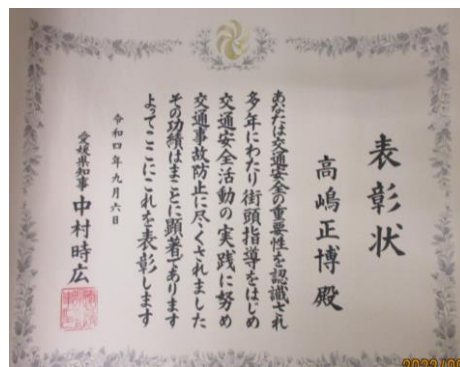 表彰状
高嶋正博殿
あなたは交通安全の重要性を認識され
多年にわたり街頭指導をはじめ
交通安全活動の実践に努め
交通事故防止に尽くされました
その功績はまことに顕著であります
よってここにこれを表彰します
令和四年九月六日
愛媛県知事 中村時広